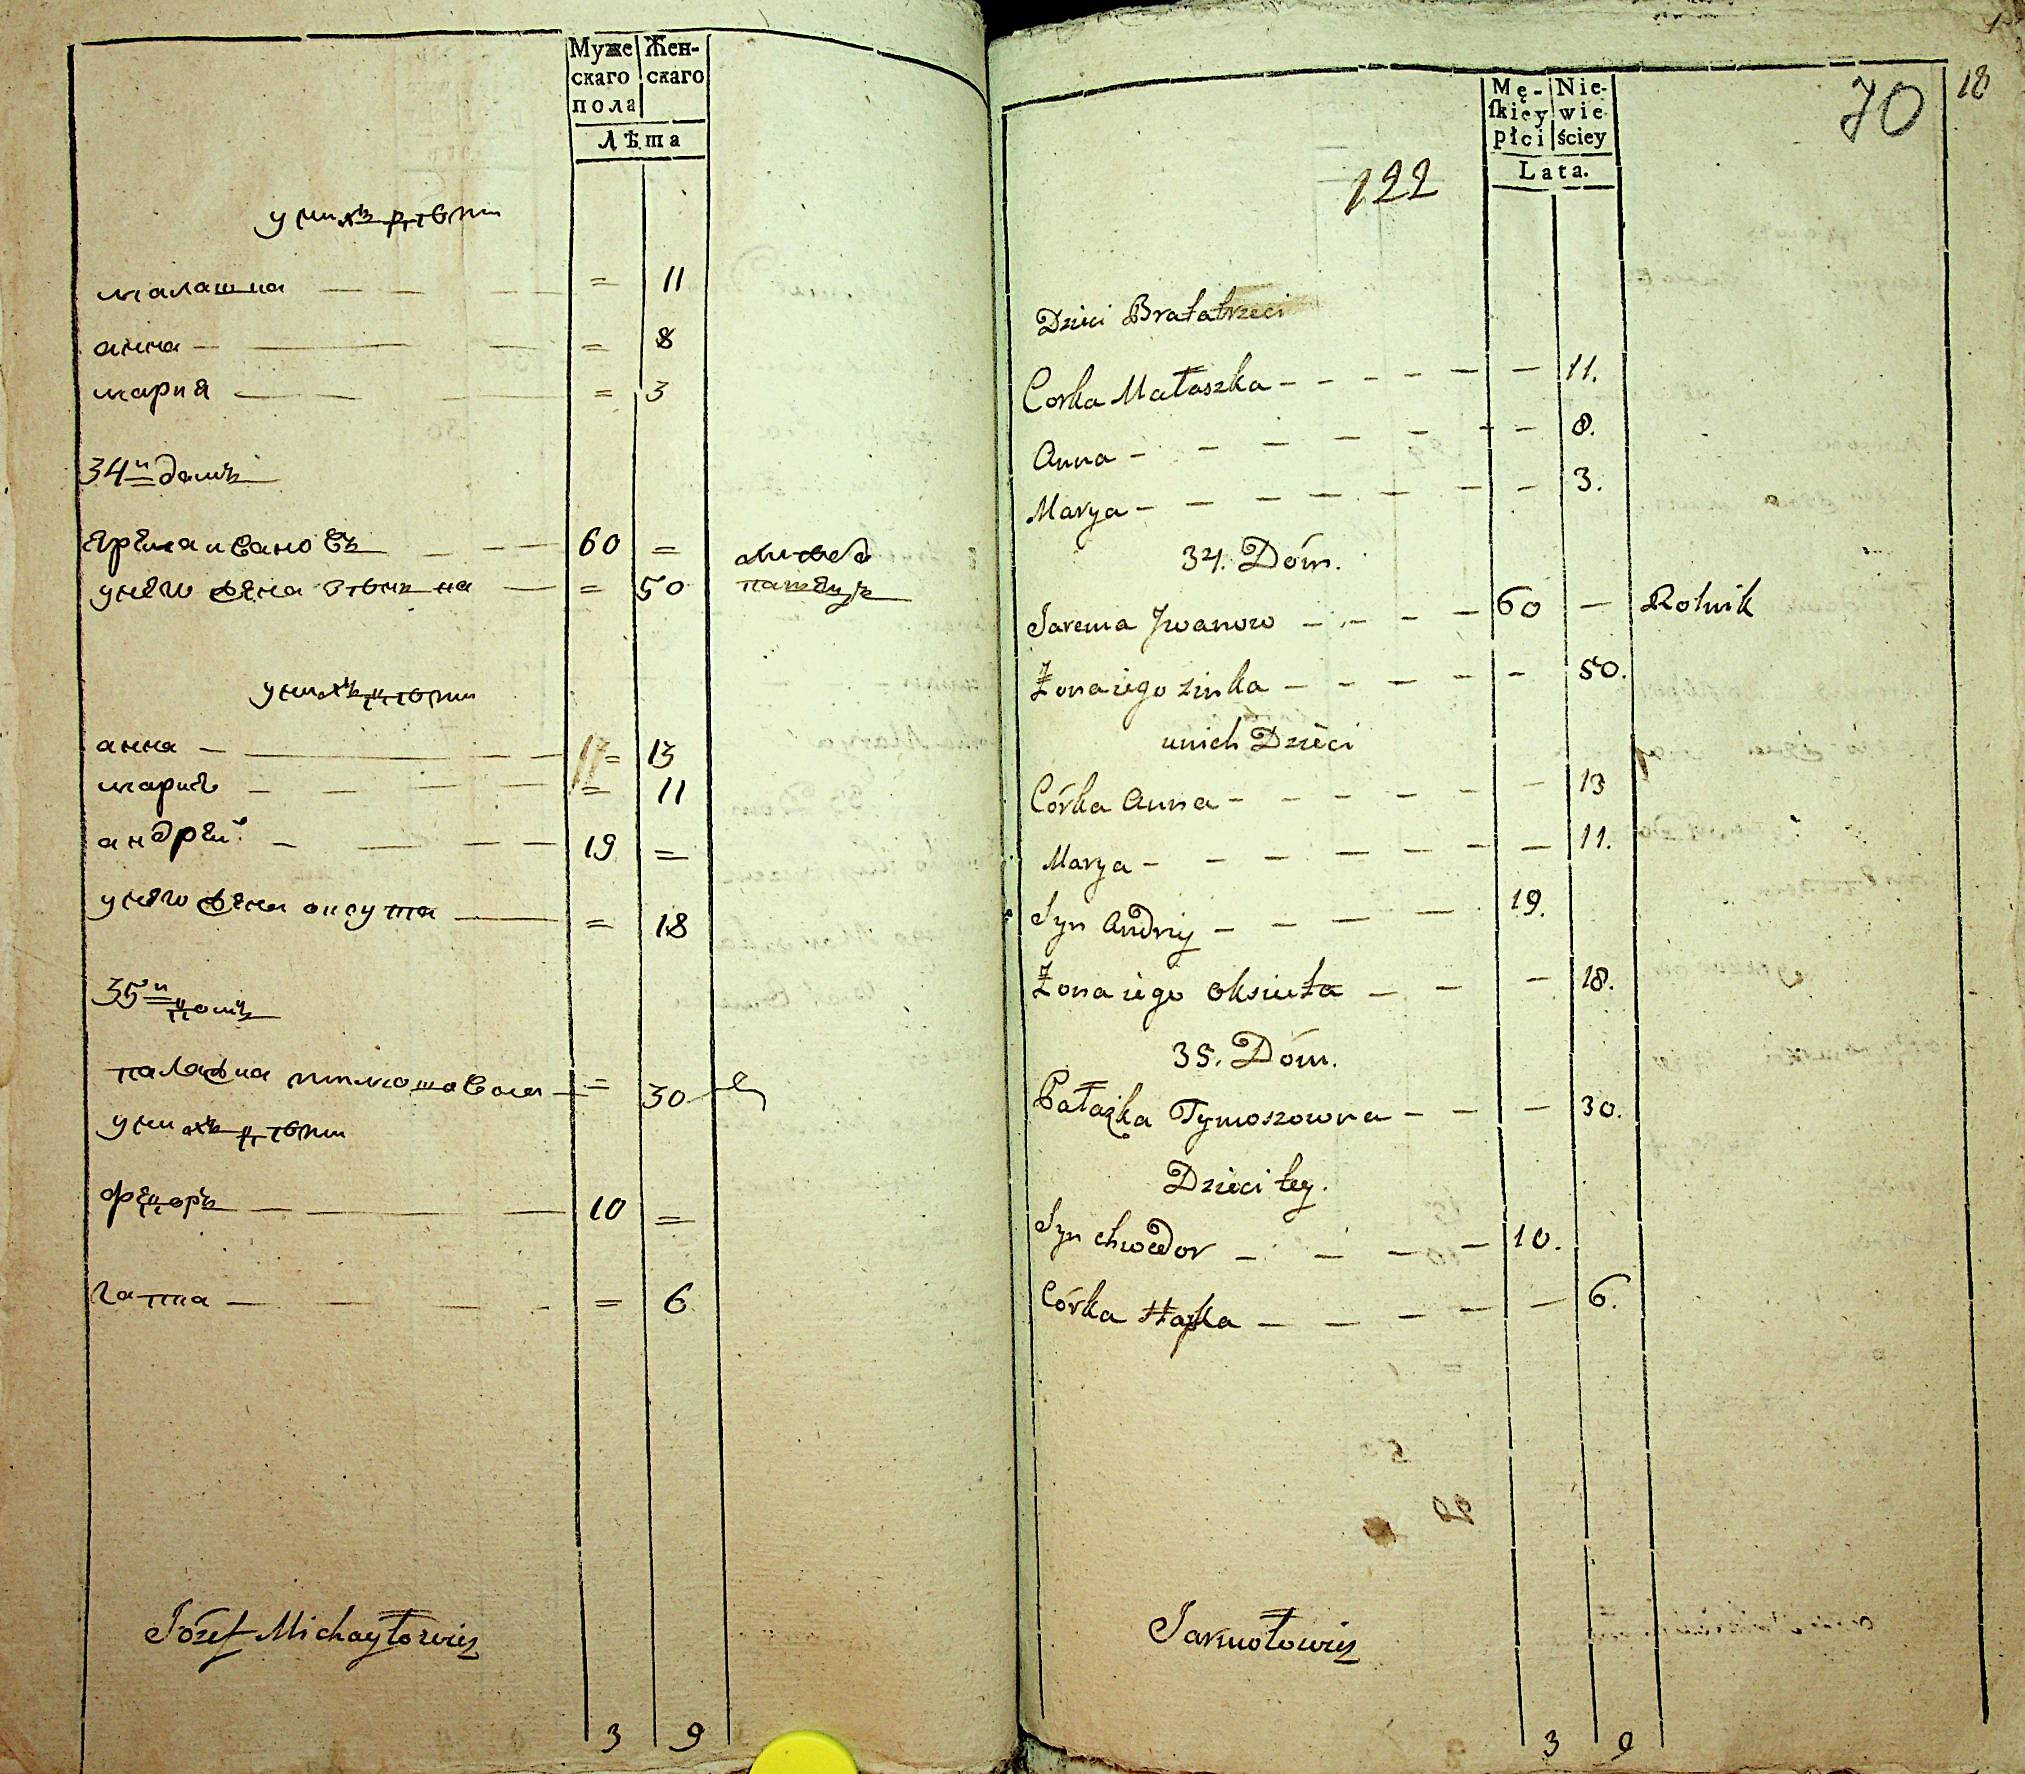 Муже Жен-
скаго скаго
пола
Лѣта
у нихъ дѣти
малашка — — — = 11
анна — — — = 8
мария — — — = 3
34й домъ
ярема ивановъ — — — 60 =
у него жена зѣнька — = 50
у нихъ дѣти
анна — — — = 13
мария — — — = 11
андрей — — — 19 =
у него жена оксута — = 18
35й домъ
палажка тимошова — = 30
у нихъ дѣти
федоръ — — — 10 =
гапка — — — = 6
Józef Michayłowicz
3 9
18
70
Mę- Nie-
ſkiey wie
płci ściey
Lata.
122
Dzieci Brata trzeci
Corka Małaszka - - - - - - 11.
Anna - - - - - - - 8.
Marya - - - - - - - 3.
34. Dóm.
Jarema Jwanow - - - - 60 — Rolnik
Żona iego zinka - - - - - - 50.
u nich Dzieci
Córka Anna - - - - - - 13
Marya - - - - - - - - 11.
Syn Andrij - - - - 19.
Żona iego Oksiuta - - - 18.
35. Dóm.
Pałażka Tymoszowna - - - 30.
Dzieci tey.
Syn Chwedor - - - - 10.
Córka Hapka - - - - - 6.
Jarmołowicz
3 9